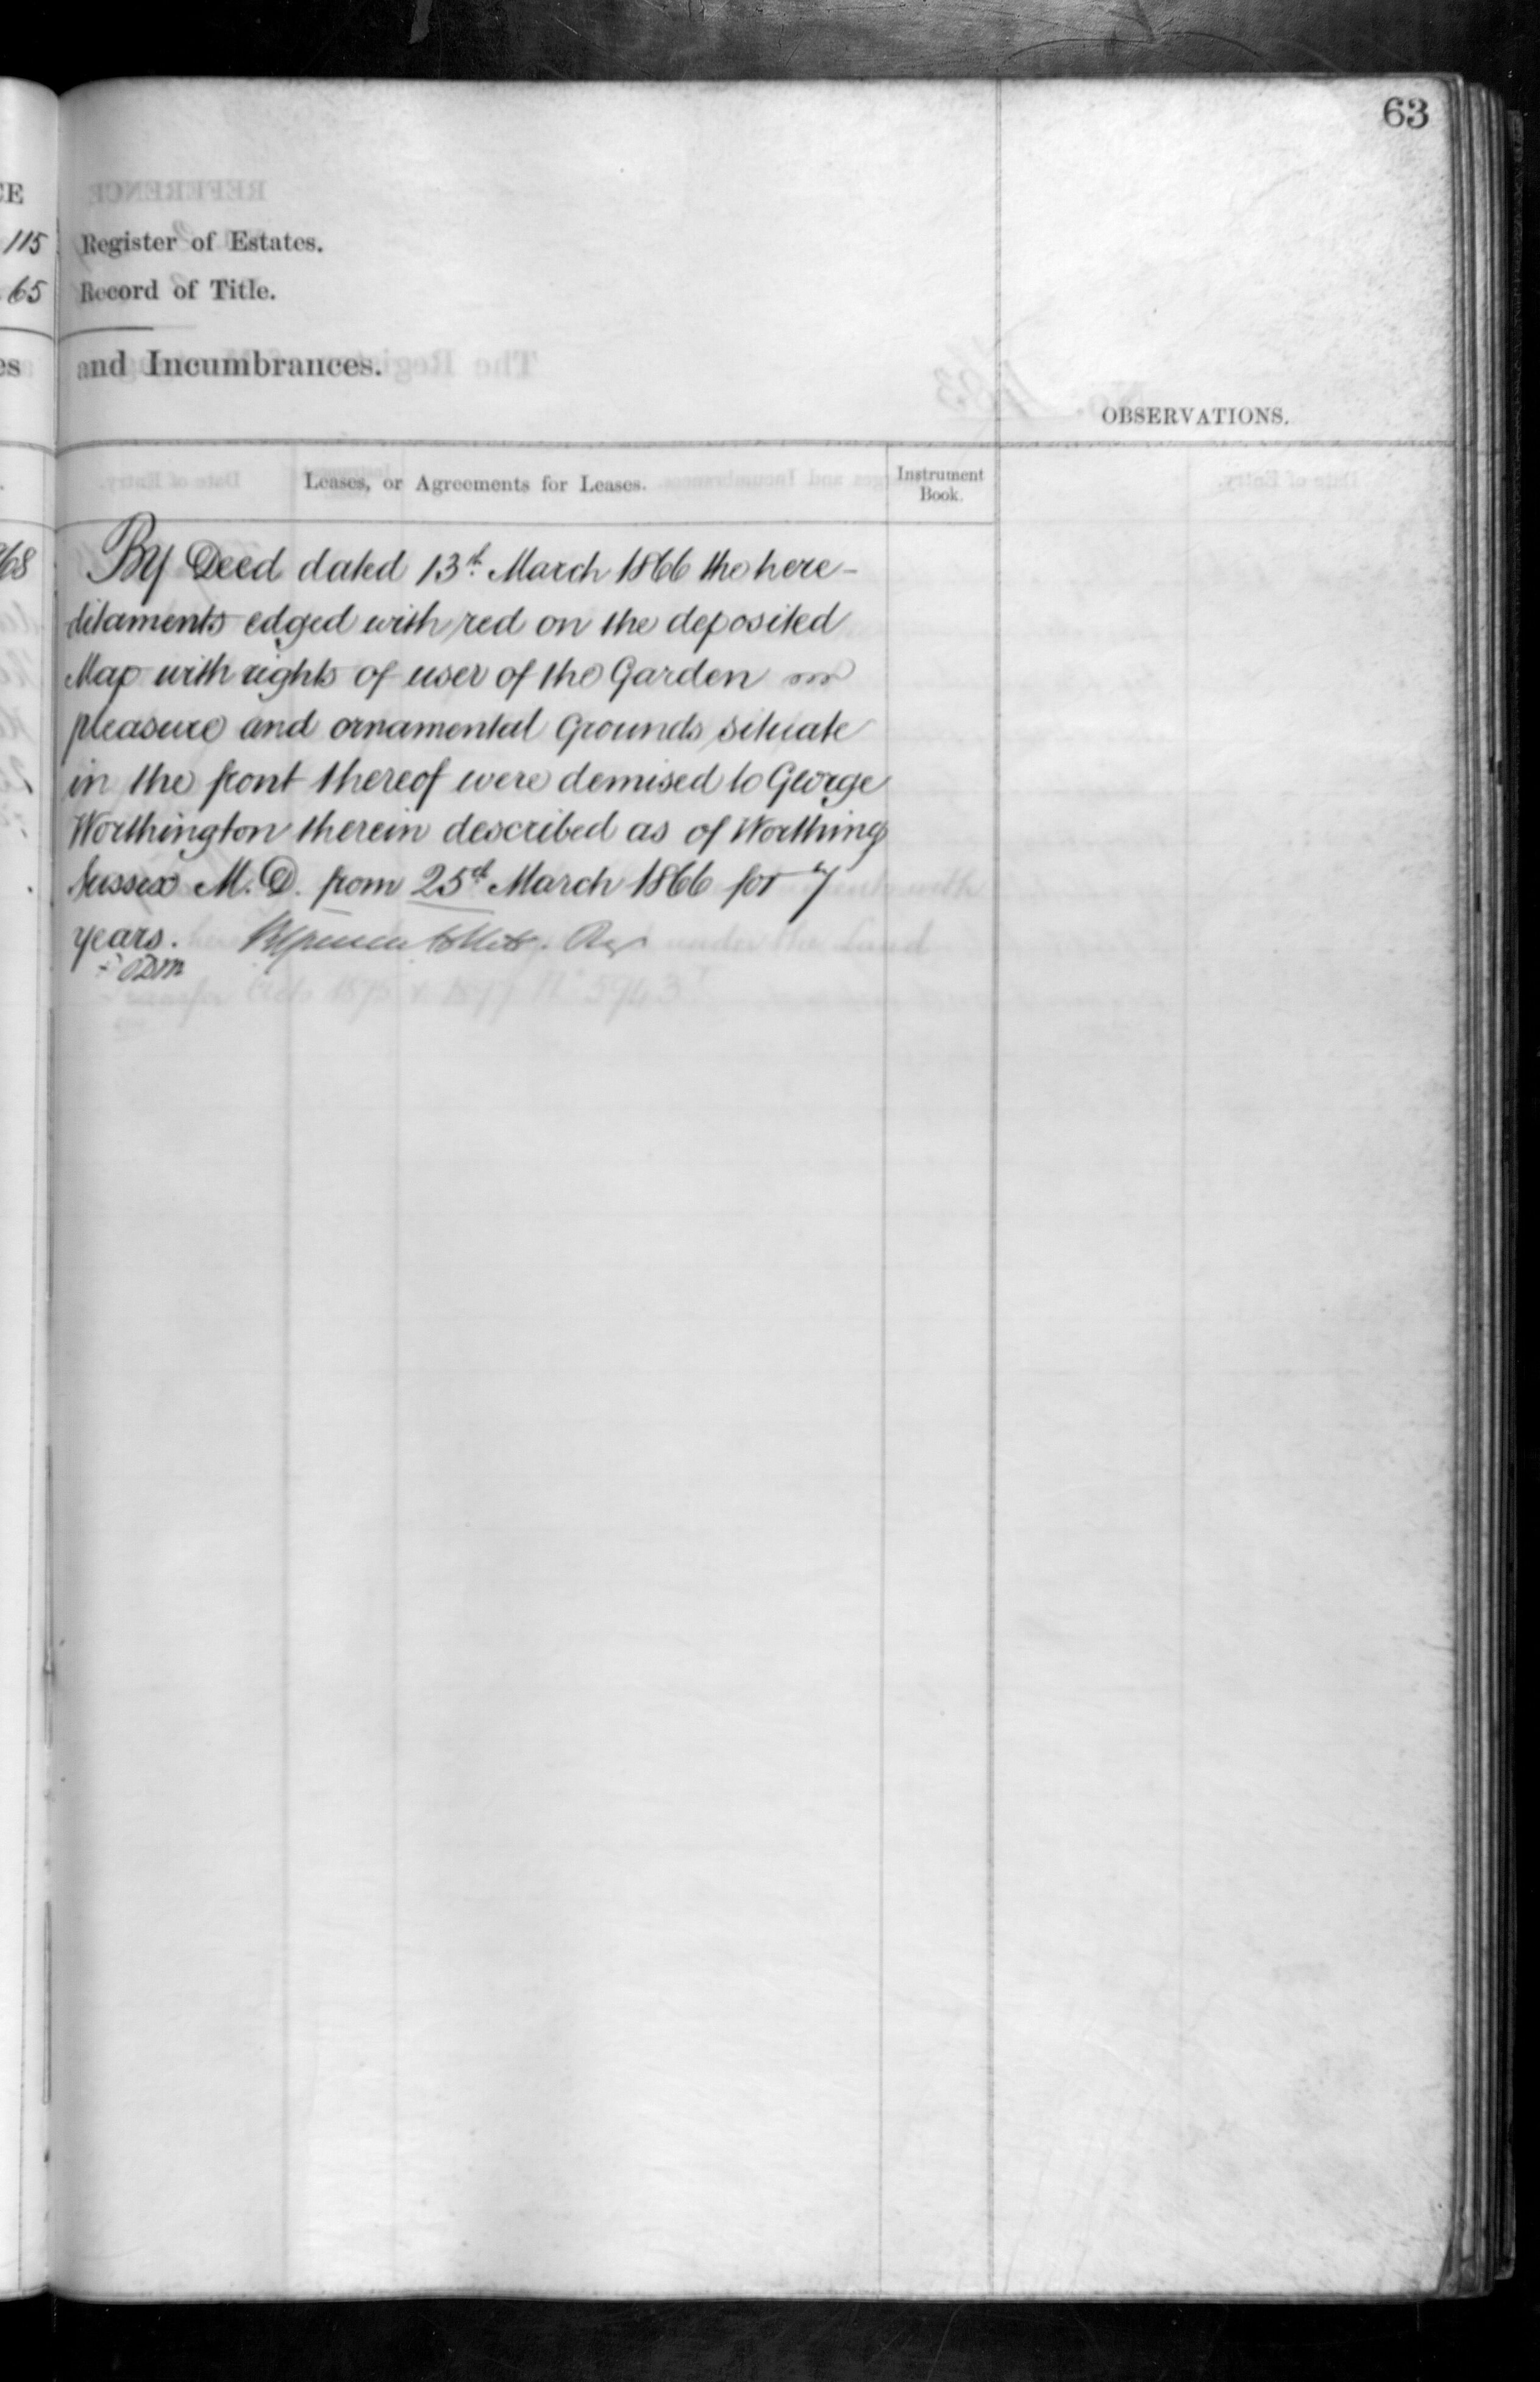 63
CE
115 Register of Estates.
65 Record of Title.
es and Incumbrances.
OBSERVATIONS.
Leases, or Agreements for Leases.
Instrument
Book.
68 By Deed dated 13th March 1866 the here-
ditaments edged with red on the deposited
Map with rights of user of the Garden
pleasure and ornamental Grounds situate
in the front thereof were demised to George
Worthington therein described as of Worthing
Sussex M.D. from 25th March 1866 for 7
years.